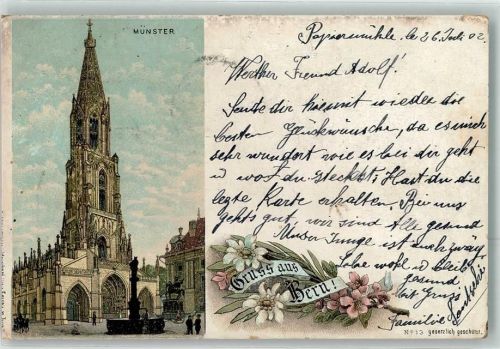 MÜNSTER
Papiermühle, le 26 Juli 02.
Werther Freund Adolf!
Sende dir hiermit wieder die
besten Glückwünsche, da es mich
sehr wundert wie es bei dir geht
u wo du steckst. Hast du die
letzte Karte erhalten. Bei uns
gehts gut, wir sind Alle gesund
Unser Junge ist
Lebe wohl u bleib
gesund
Gruss
Familie
Gruss aus
Bern!
No 13 gesetzlich geschützt.